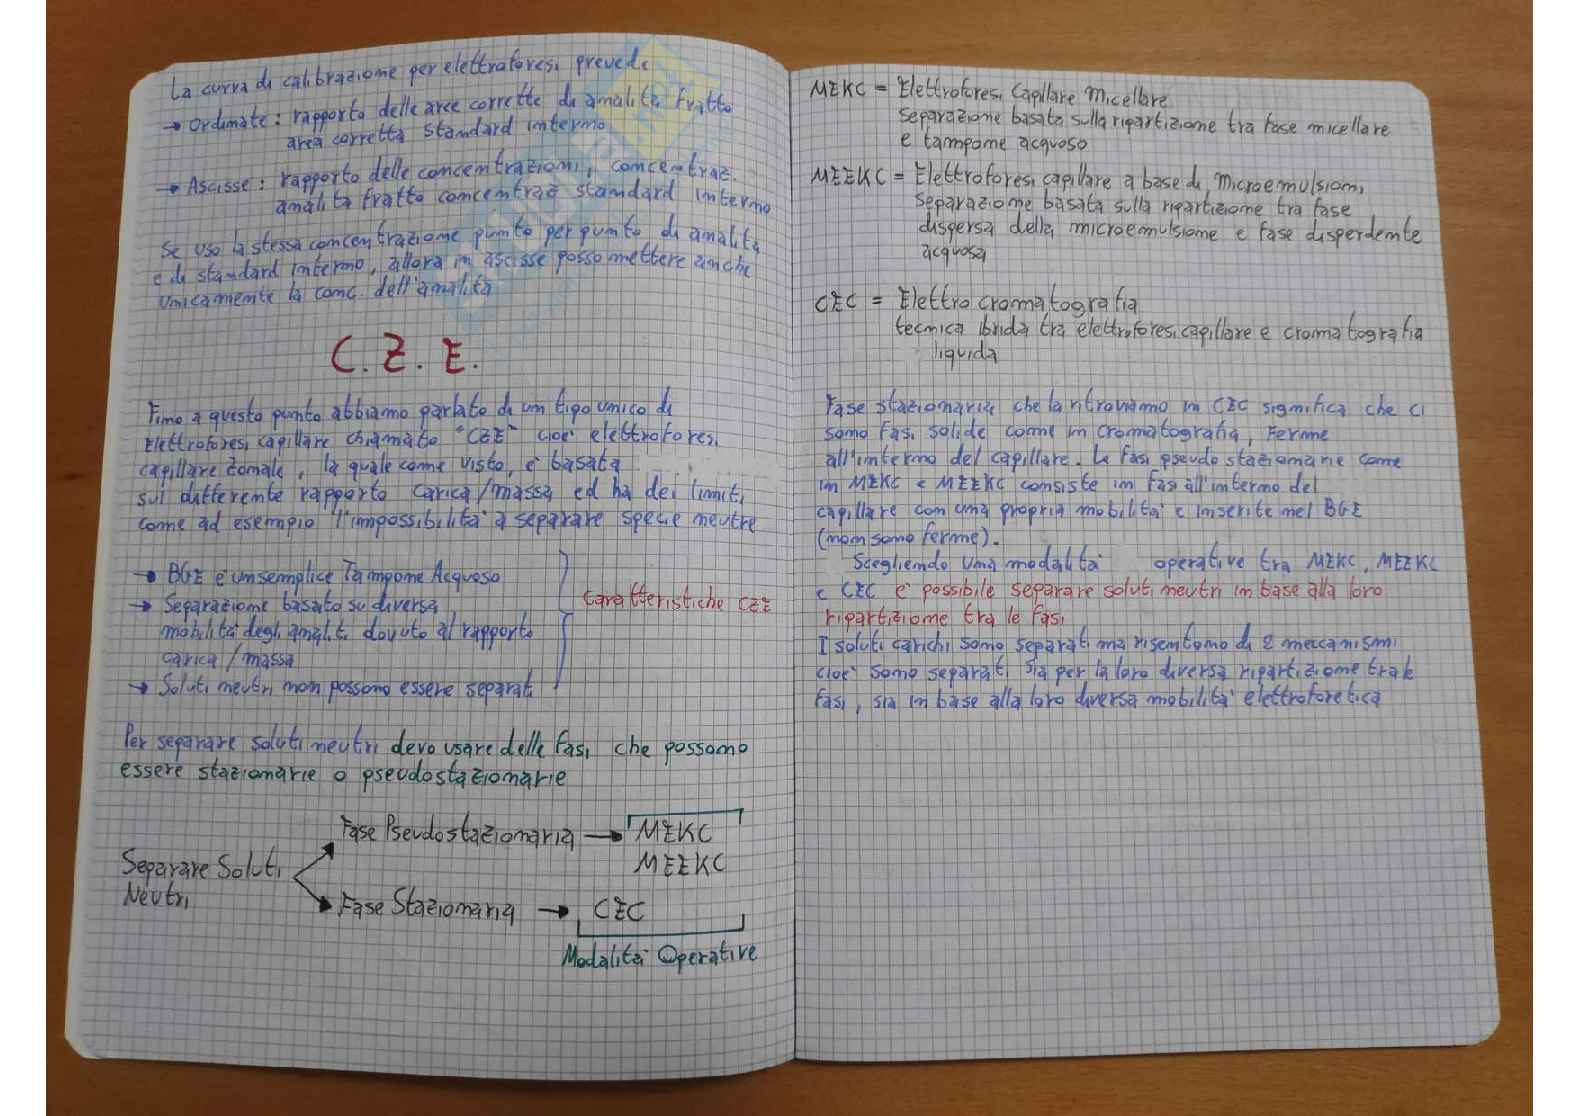 La curva di calibrazione per elettroforesi prevede
→ Ordinate: rapporto delle aree corrette di analita fratto
area corretta standard interno
→ Ascisse: rapporto delle concentrazioni, concentraz.
analita fratto concentraz standard interno
Se uso la stessa concentrazione punto per punto di analita
e di standard interno, allora in ascisse posso mettere anche
unicamente la conc dell'analita
C. Z. E.
Fino a questo punto abbiamo parlato di un tipo unico di
elettroforesi capillare chiamato "CZE" cioè elettroforesi
capillare zonale, la quale come visto, è basata
sul differente rapporto carica/massa ed ha dei limiti
come ad esempio l'impossibilità a separare specie neutre
→ BGE è un semplice Tampone Acquoso
→ Separazione basato su diversa
mobilità degli analiti dovuto al rapporto
carica/massa
→ Soluti neutri non possono essere separati
Caratteristiche CZE
Per separare soluti neutri devo usare delle fasi che possono
essere stazionarie o pseudostazionarie
Separare Soluti
Neutri
Fase Pseudostazionaria → MEKC
MEEKC
Fase Stazionaria → CEC
Modalità Operative
MEKC = Elettroforesi Capillare Micellare
separazione basata sulla ripartizione tra fase micellare
e tampone acquoso
MEEKC = Elettroforesi capillare a base di microemulsioni
separazione basata sulla ripartizione tra fase
dispersa della microemulsione e fase disperdente
acquosa
CEC = Elettro cromatografia
tecnica ibrida tra elettroforesi capillare e cromatografia
liquida
Fase stazionaria che la ritroviamo in CEC significa che ci
sono fasi solide come in cromatografia, ferme
all'interno del capillare. Le fasi pseudo stazionarie come
in MEKC e MEEKC consiste in fasi all'interno del
capillare con una propria mobilità e inserite nel BGE
(non sono ferme).
Scegliendo una modalità operative tra MEKC, MEEKC
e CEC è possibile separare soluti neutri in base alla loro
ripartizione tra le fasi
I soluti carichi sono separati ma risentono di 2 meccanismi
cioè sono separati sia per la loro diversa ripartizione tra le
fasi, sia in base alla loro diversa mobilità elettroforetica